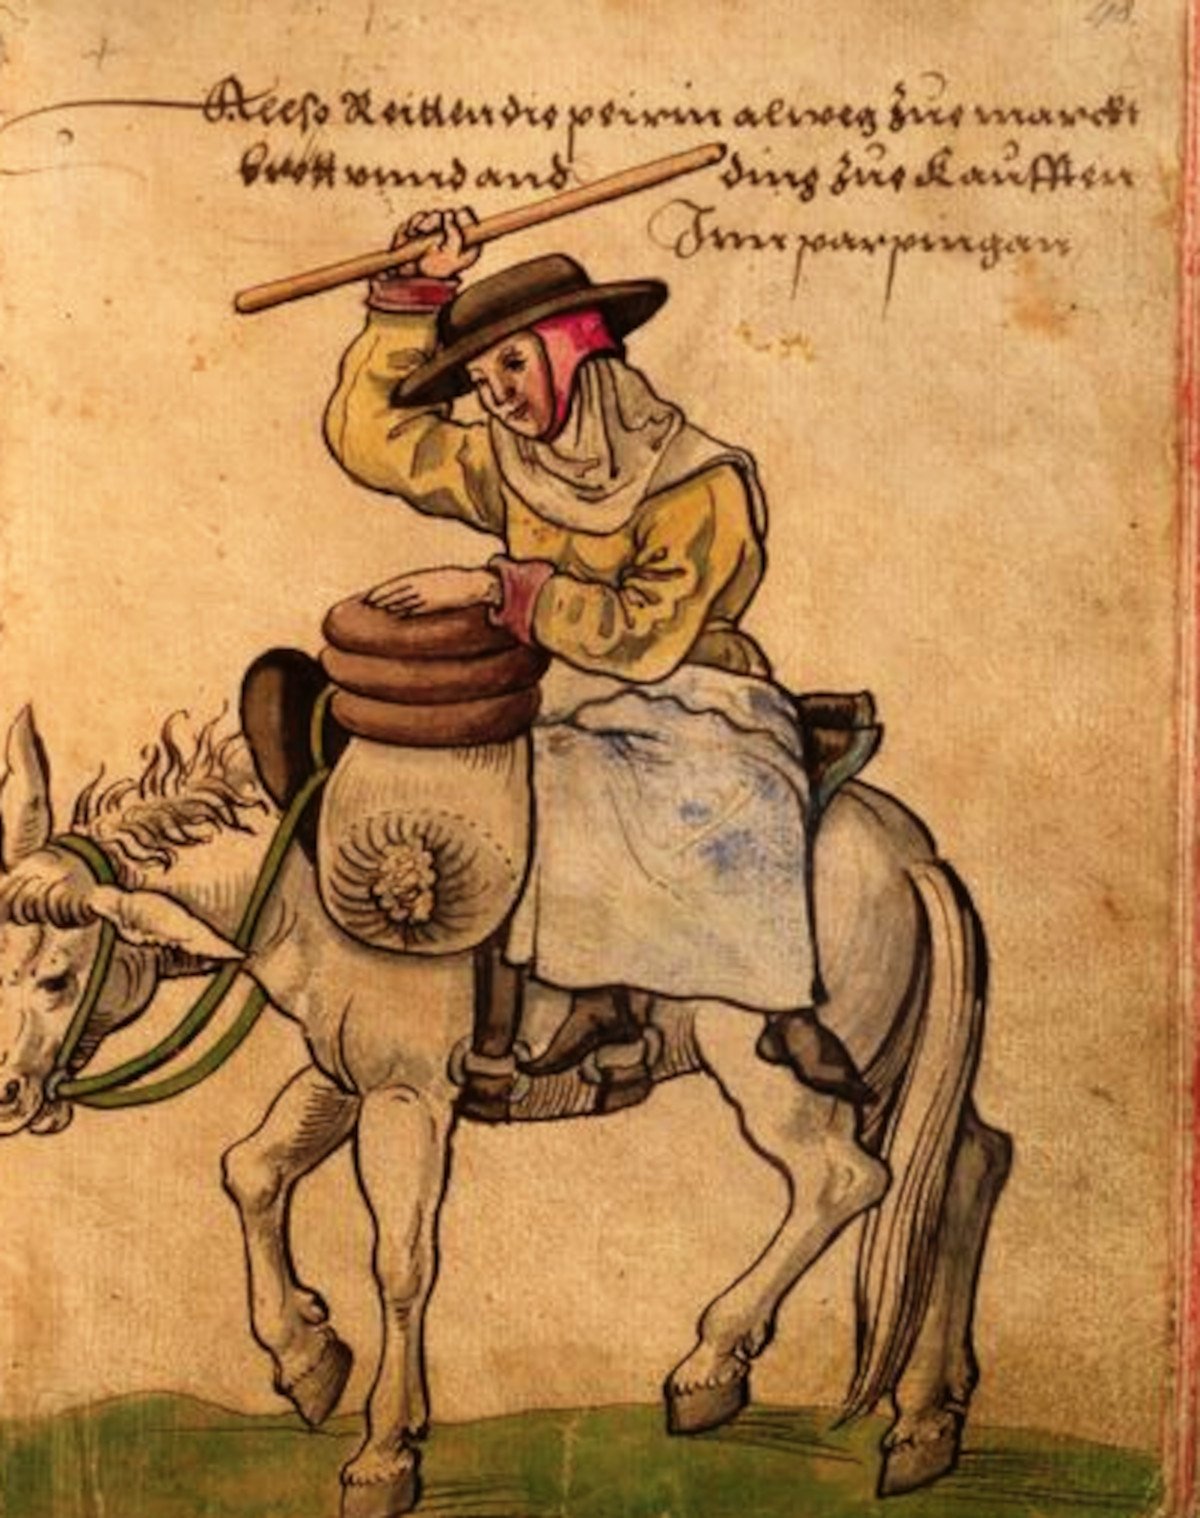 Allso Reitten die peirin alweg zue marckt
brott vnnd and ding zue Kaufften
Inn parpingan